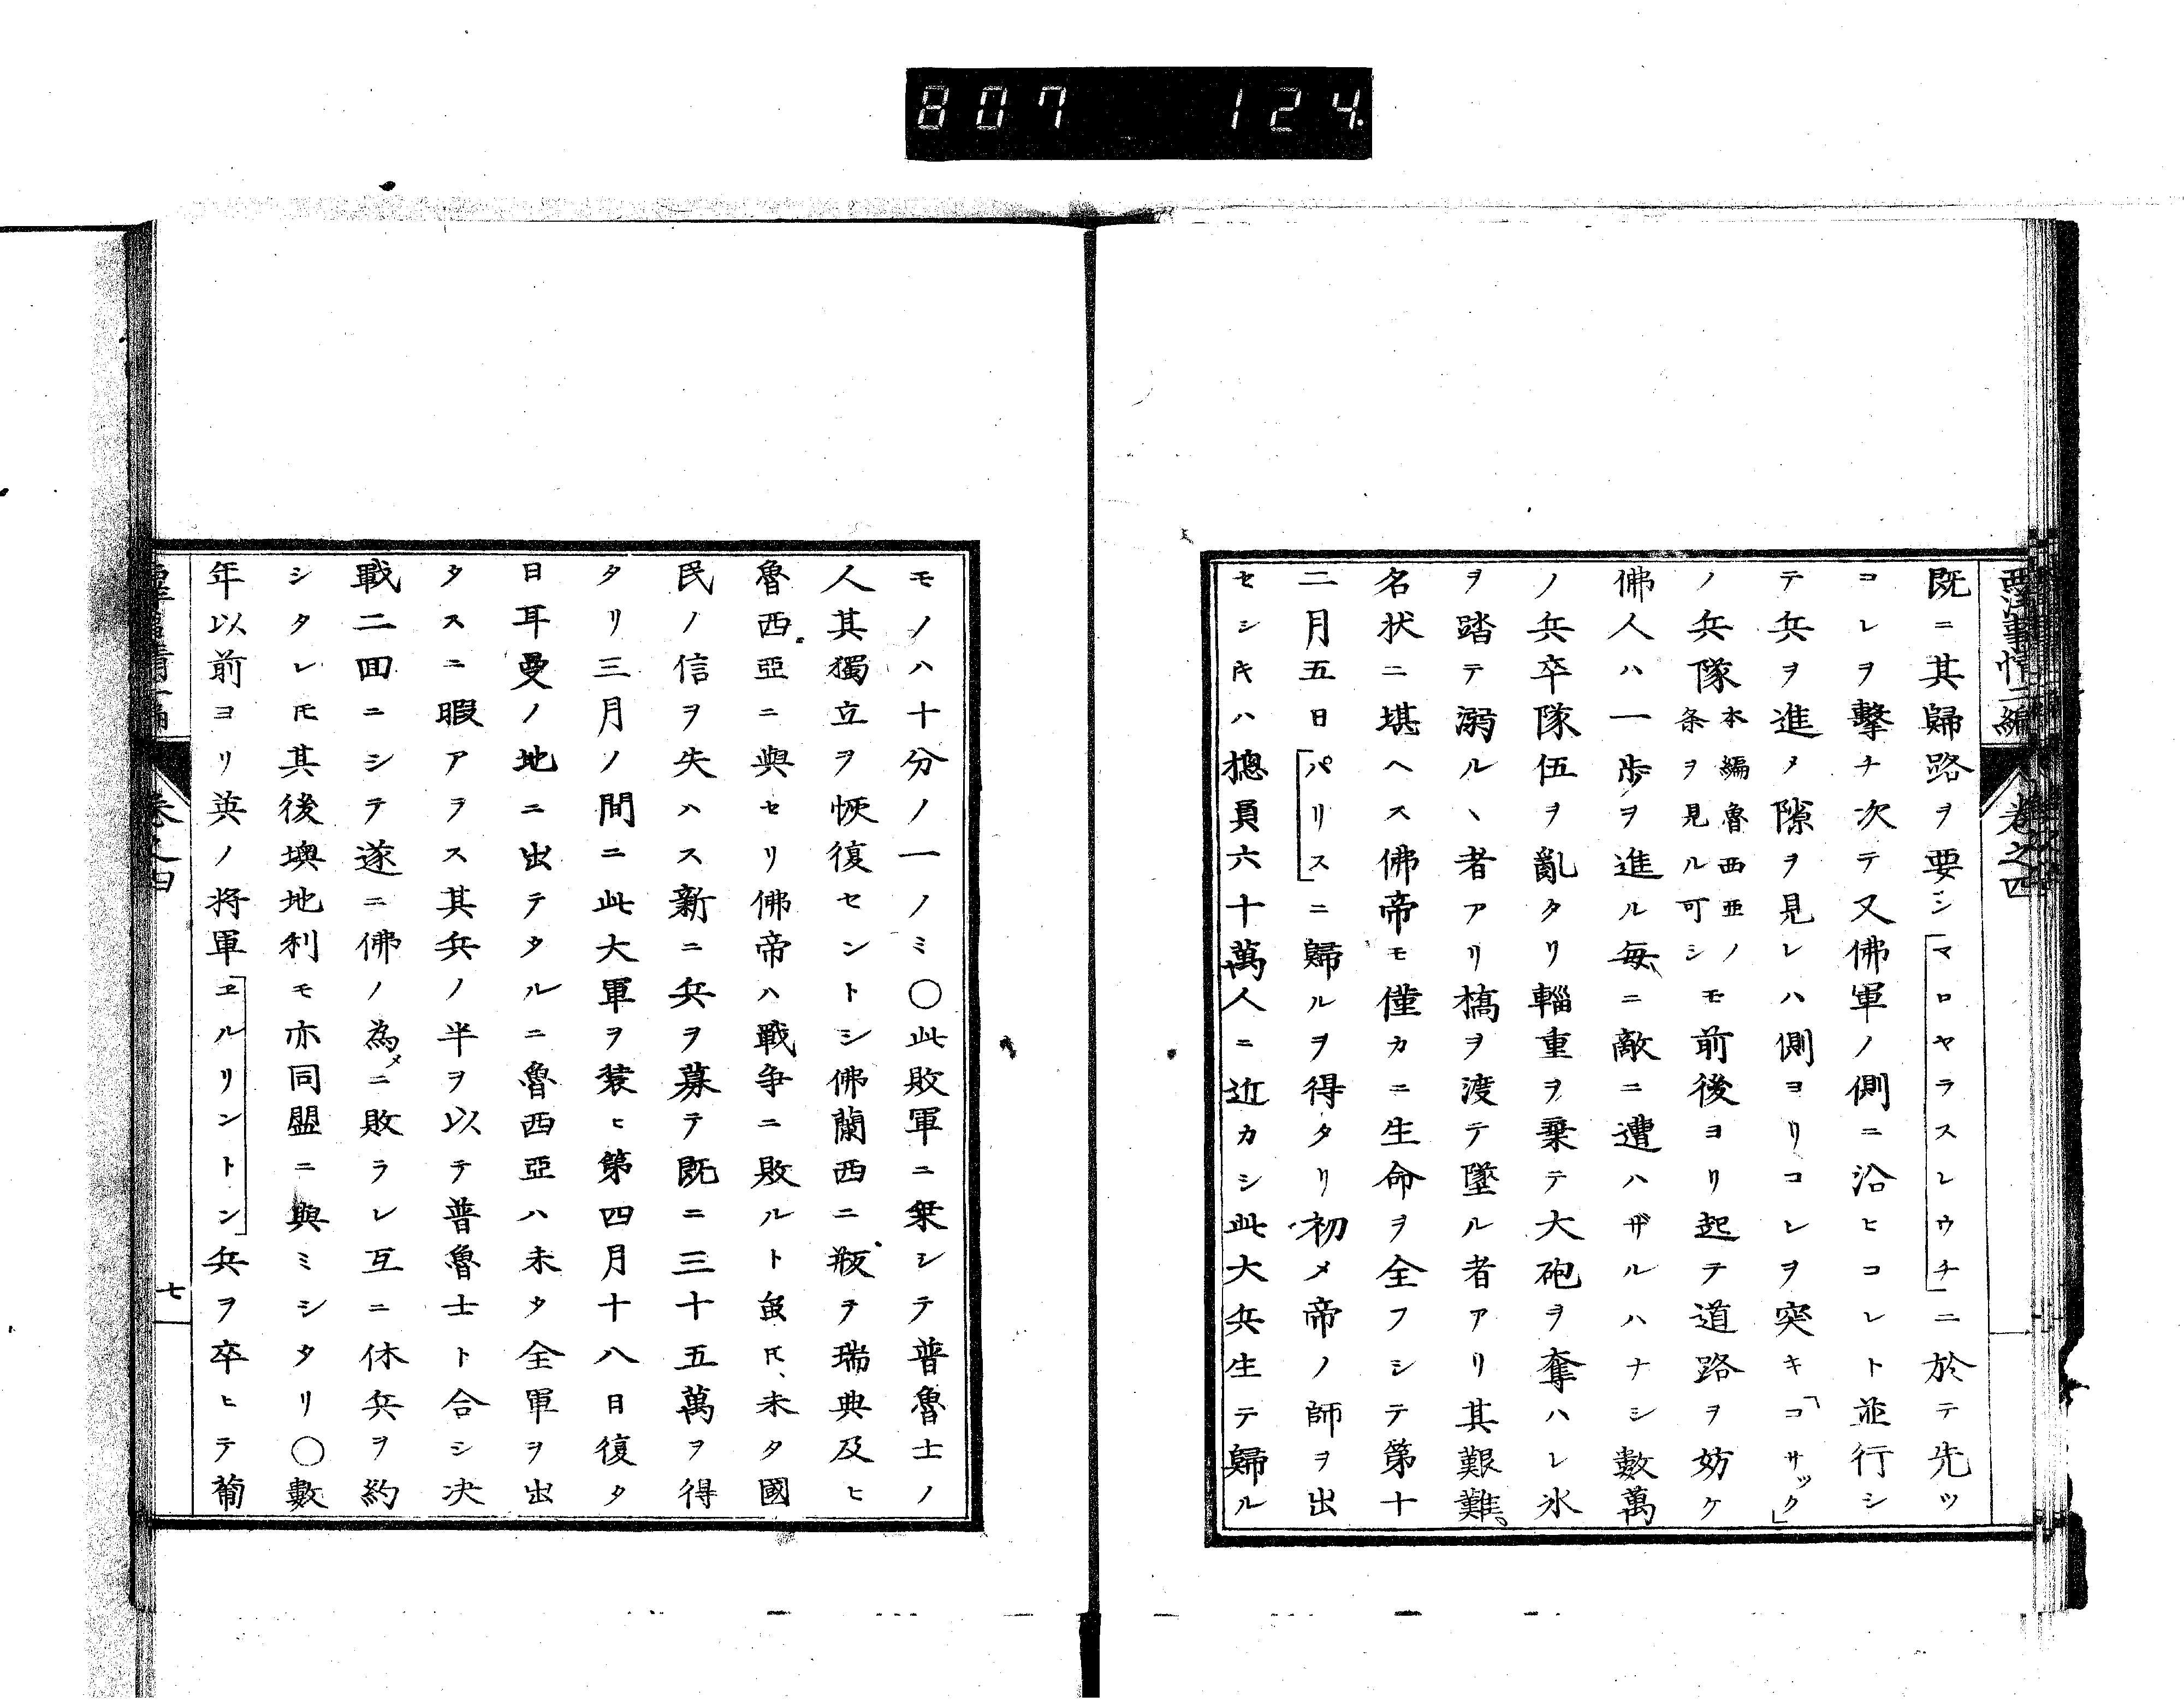 807 124.
西洋事情二編 卷之四
既ニ其歸路ヲ要シ「マロヤラスレウチ」ニ於テ先ツ
コレヲ擊チ次テ又佛軍ノ側ニ沿ヒコレト並行シ
テ兵ヲ進メ隙ヲ見レハ側ヨリコレヲ突キ「コサック」
ノ兵隊本編魯西亞ノ条ヲ見ル可シモ前後ヨリ起テ道路ヲ妨ケ
佛人ハ一歩ヲ進ル每ニ敵ニ遭ハザルハナシ數萬
ノ兵卒隊伍ヲ亂タリ輜重ヲ棄テ大砲ヲ奪ハレ氷
ヲ踏テ溺ルヽ者アリ橋ヲ渡テ墜ル者アリ其艱難
名狀ニ堪ヘス佛帝モ僅カニ生命ヲ全フシテ第十
二月五日「パリス」ニ歸ルヲ得タリ初メ帝ノ師ヲ出
セシキハ摠員六十萬人ニ近カシ此大兵生テ歸ル
モノハ十分ノ一ノミ○此敗軍ニ乗シテ普魯士ノ
人其獨立ヲ恢復セントシ佛蘭西ニ叛テ瑞典及ヒ
魯西亞ニ與セリ佛帝ハ戰爭ニ敗ルト虽𪜈未タ國
民ノ信ヲ失ハス新ニ兵ヲ募テ既ニ三十五萬ヲ得
タリ三月ノ間ニ此大軍ヲ裝ヒ第四月十八日復タ
日耳曼ノ地ニ出テタルニ魯西亞ハ未タ全軍ヲ出
タスニ暇アヲス其兵ノ半ヲ以テ普魯士ト合シ决
戰二回ニシテ遂ニ佛ノ為メニ敗ラレ互ニ休兵ヲ約
シタレ𪜈其後墺地利モ亦同盟ニ與ミシタリ○數
年以前ヨリ英ノ将軍「ヱルリントン」兵ヲ卒ヒテ葡
七